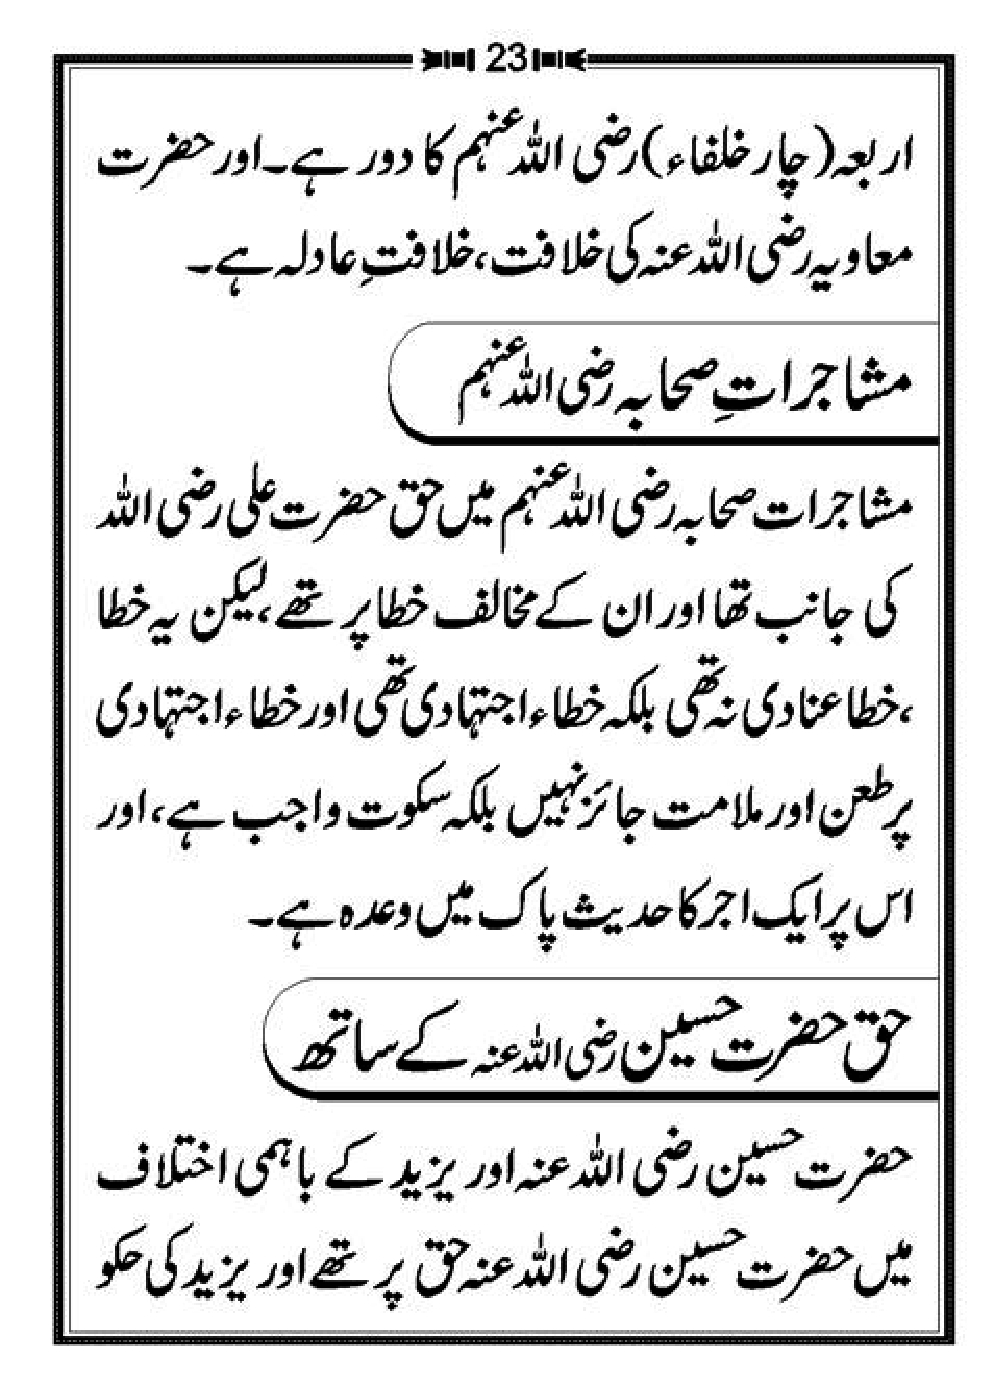 23
اربعہ(چار خلفاء)رضی اللہ عنہم کا دور ہے۔اور حضرت
معاویہ رضی اللہ عنہ کی خلافت، خلافتِ عادلہ ہے۔
مشاجراتِ صحابہ رضی اللہ عنہم
مشاجرات صحابہ رضی اللہ عنہم میں حق حضرت علی رضی اللہ
کی جانب تھا اور ان کے مخالف خطا پر تھے،لیکن یہ خطا
،خطا عنادی نہ تھی بلکہ خطاء اجتہادی تھی اور خطاء اجتہادی
پر طعن اور ملامت جائز نہیں بلکہ سکوت واجب ہے،اور
اس پر ایک اجر کا حدیث پاک میں وعدہ ہے۔
حق حضرت حسین رضی اللہ عنہ کے ساتھ
حضرت حسین رضی اللہ عنہ اور یزید کے باہمی اختلاف
میں حضرت حسین رضی اللہ عنہ حق پر تھے اور یزید کی حکو